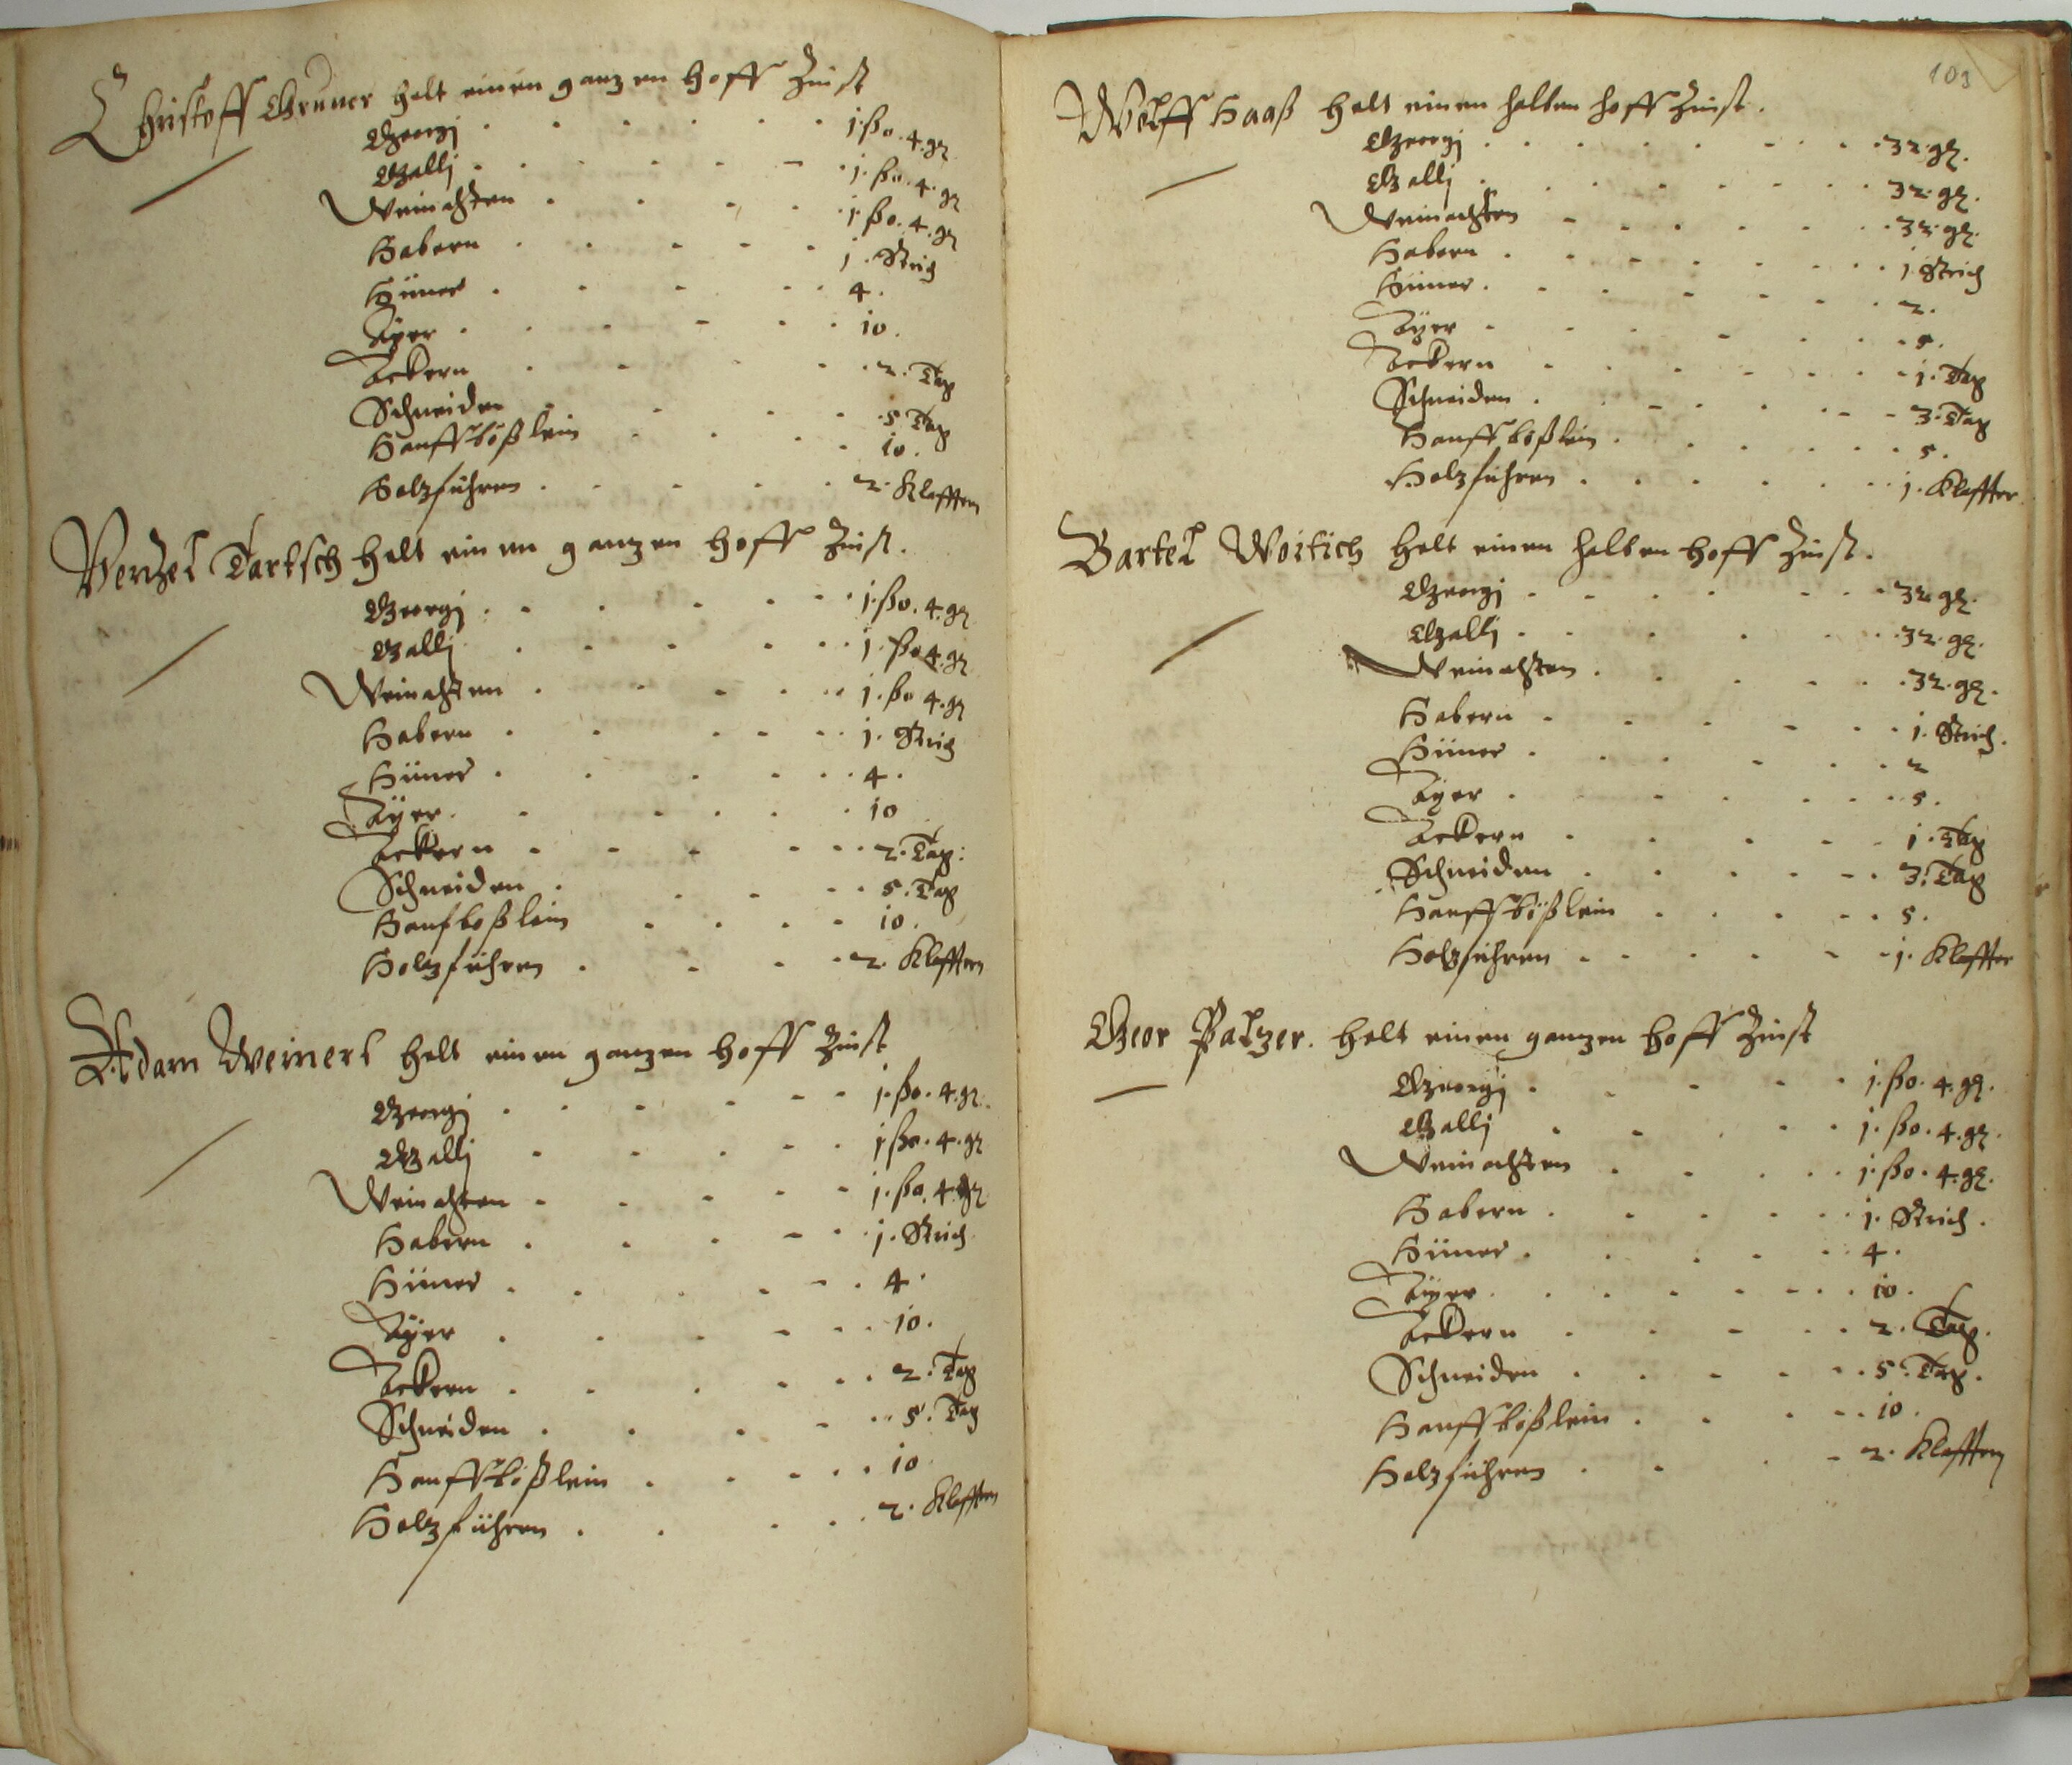 Christoff Gruner helt einen ganzen Hoff Zinst
Georgj . . . . . . 1. ßo. 4. gl
Gallj . . . . . . 1. ßo. 4. gl
Weinachten . . . . . 1 ßo. 4. gl
Habern . . . . . 1. Strich
Hüner . . . . . 4.
Ayer . . . . . 10.
Ackern . . . . . 2. Tag
Schneiden . . . . 5 Tag
Hanffbößlein . . . . 10.
Holzführen . . . . . 2. Klafftern
Wenzel Tartsch helt einen ganzen Hoff Zinst.
Georgj . . . . . . 1. ßo. 4. gl
Gallj . . . . . 1. ßo 4. gl
Weinachten . . . . . 1. ßo 4. gl
Habern . . . . . 1. Strich
Hüner . . . . . 4.
Ayer . . . . . 10
Ackern . . . . . 2. Tag.
Schneiden . . . . . 5. Tag
Hanfboßlein . . . . 10.
Holzführen . . . . 2. Klafftern
Adam Weinert helt einen ganzen Hoff Zinst
Georgj . . . . . . 1. ßo. 4. gl.
Gallj . . . . . 1 ßo. 4. gl
Weinachten . . . . . 1. ßo. 4. gl
Habern . . . . . 1. Strich
Hüner . . . . . 4.
Ayer . . . . . 10.
Ackern . . . . . 2. Tag
Schneiden . . . . . 5. Tag
Hanffbößlein . . . . . 10
Holzführen . . . . . 2. Klafftern
103
Wolff Haaß helt einen halben Hoff Zinst.
Georgj . . . . . . 32. gl.
Gallj . . . . . . 32. gl.
Weinachten . . . . . . 32. gl.
Habern . . . . . . 1. Strich
Hüner . . . . . . 2.
Ayer . . . . . . 5.
Ackern . . . . . . 1. Tag
Schneiden . . . . . . 3. Tag
Hanffbößlein . . . . . . 5.
Holzführen . . . . . . 1. Klaffter
Bartel Woitich helt einen halben Hoff Zinst.
Georgj . . . . . . 32 gl.
Gallj . . . . . . 32. gl.
Weinachten . . . . . . 32. gl.
Habern . . . . . . 1. Strich.
Hüner . . . . . . 2
Ayer . . . . . . 5.
Ackern . . . . . 1. Tag
Schneiden . . . . . 3. Tag
Hanffbößlein . . . . . 5.
Holzführen . . . . . . 1. Klaffter
Geor Palzer. helt einen ganzen Hoff Zinst
Georgj . . . . . 1. ßo. 4. gl.
Gallj . . . . . 1. ßo. 4. gl.
Weinachten . . . . . 1. ßo. 4. gl.
Habern . . . . . . 1. Strich.
Hüner . . . . . 4.
Ayer . . . . . . 10.
Ackern . . . . . 2. Tag.
Schneiden . . . . . 5. Tag.
Hanffbößlein . . . . . 10.
Holzführen . . . . 2. Klafftern